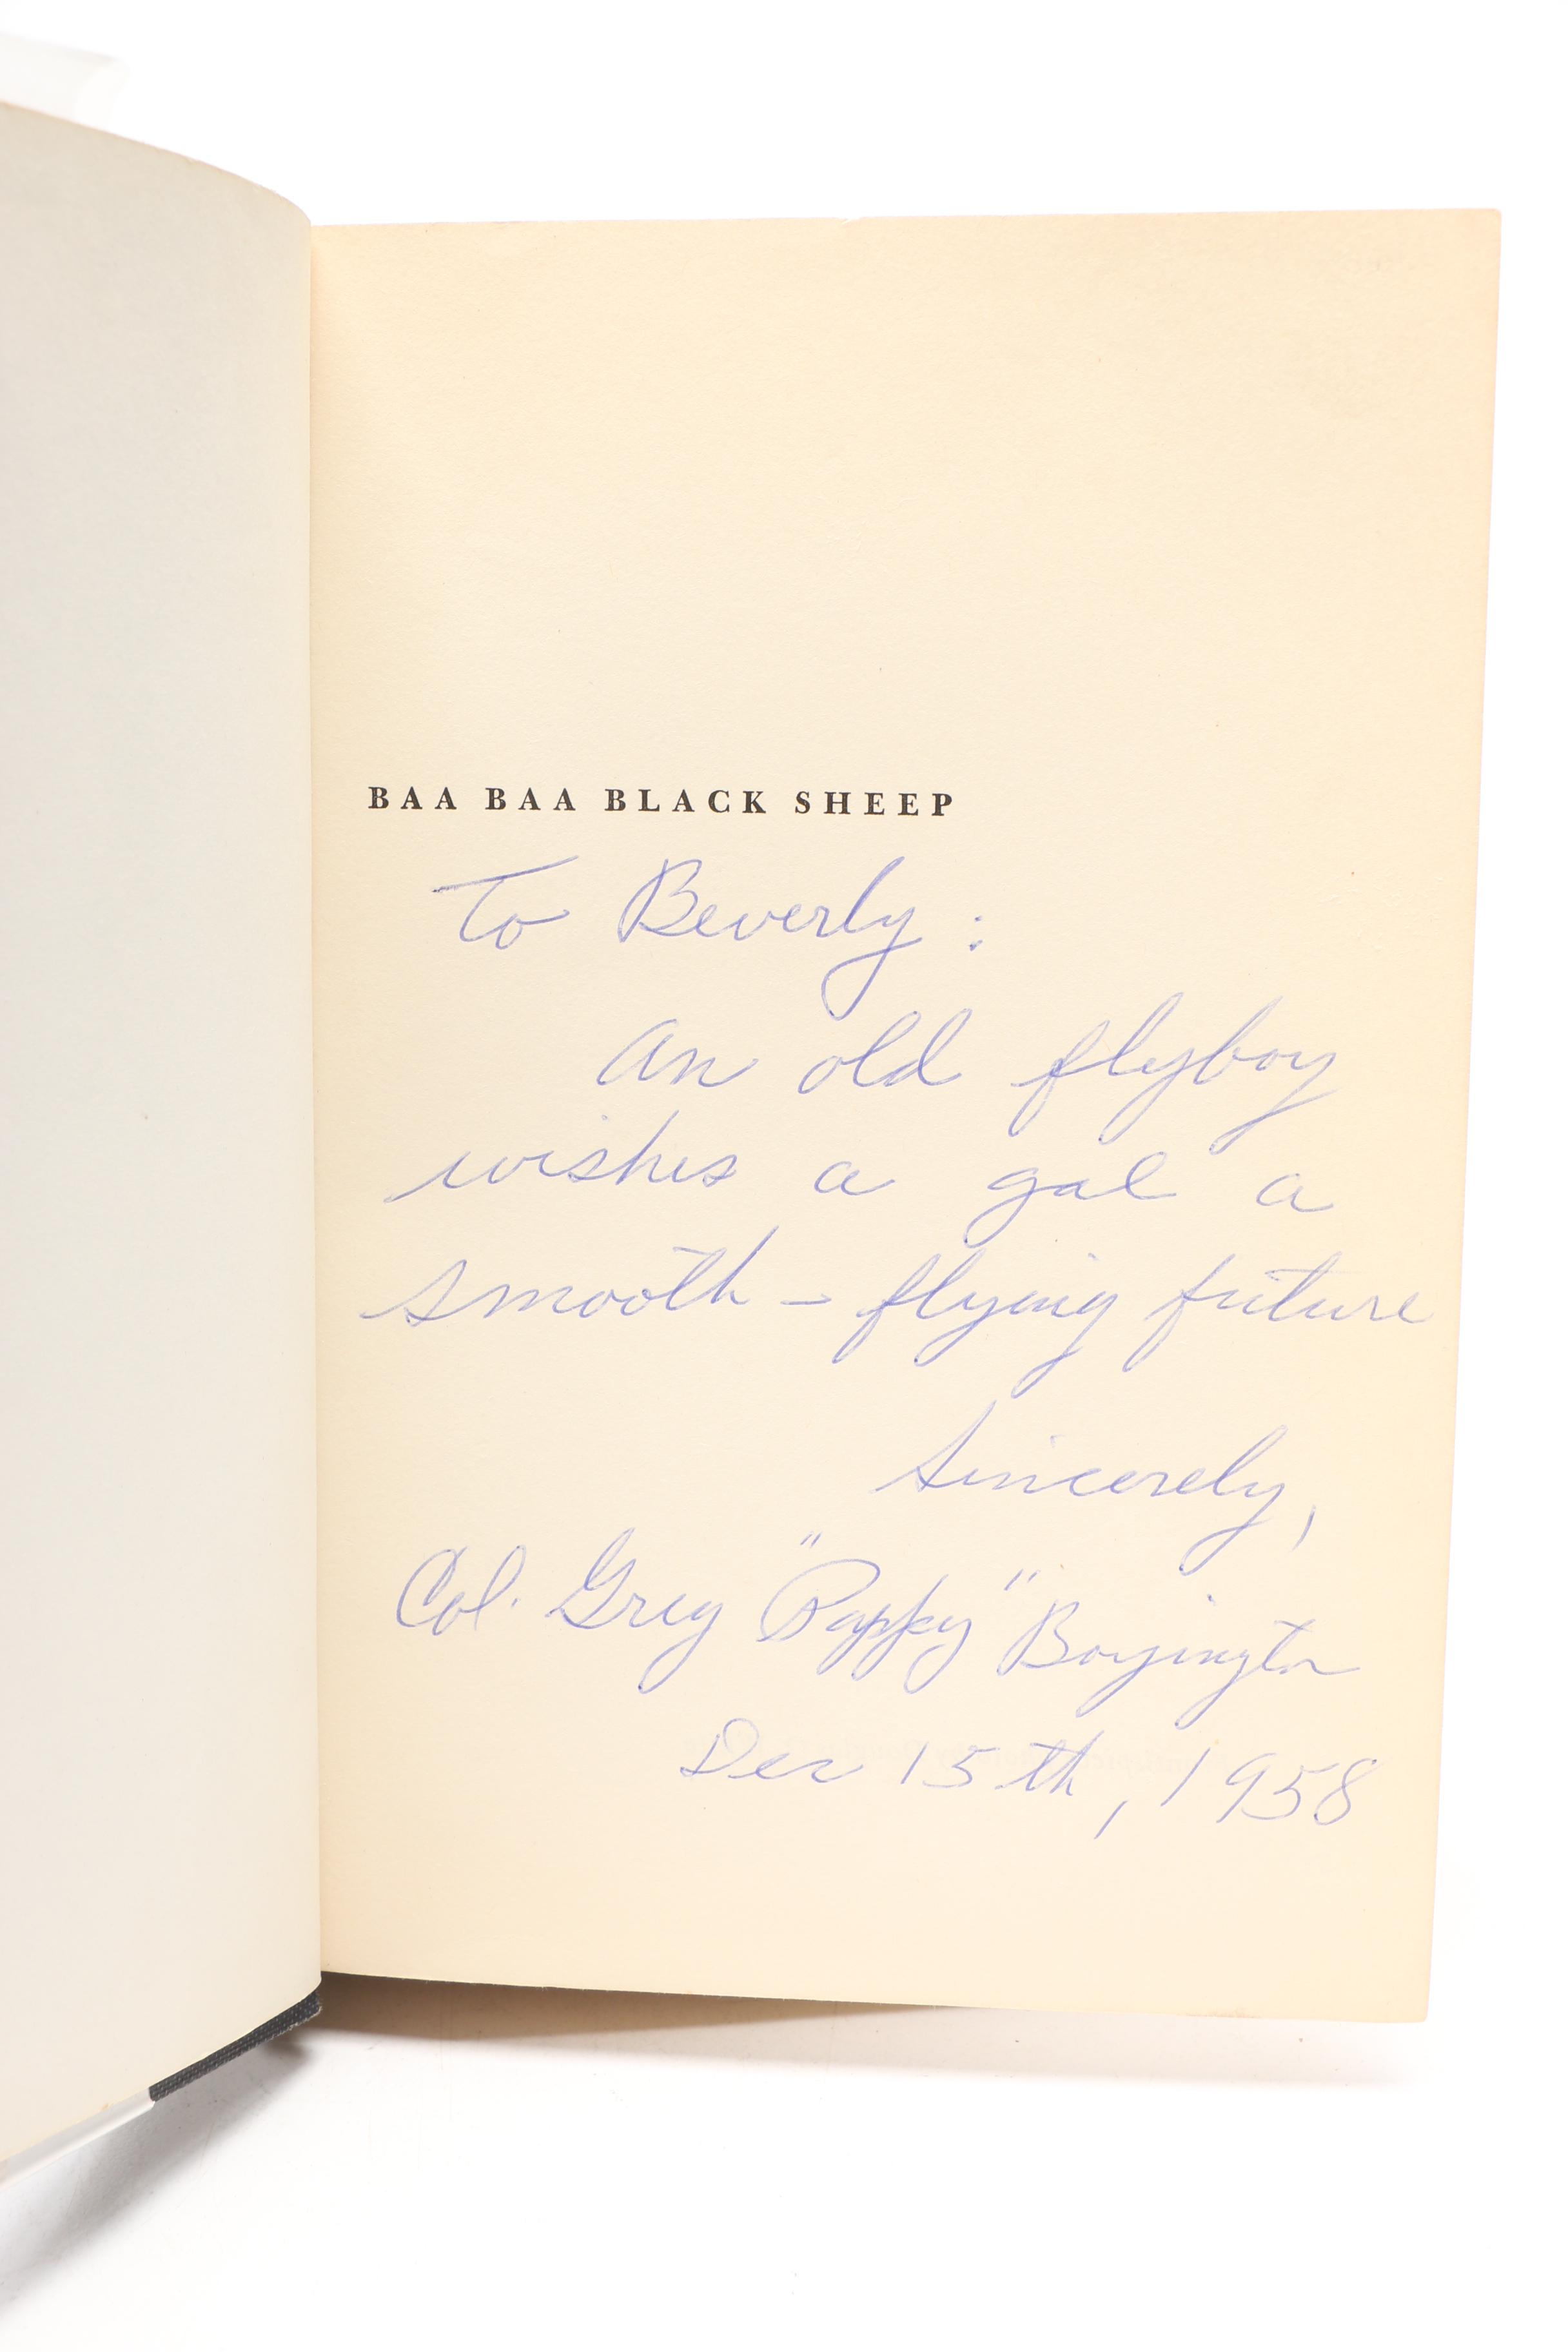 BAA BAA BLACK SHEEP
To Beverly:
An old flyboy
wishes a gal a
smooth-flying future
Sincerely,
Col. Greg "Pappy" Boyington
Dec 15th, 1958